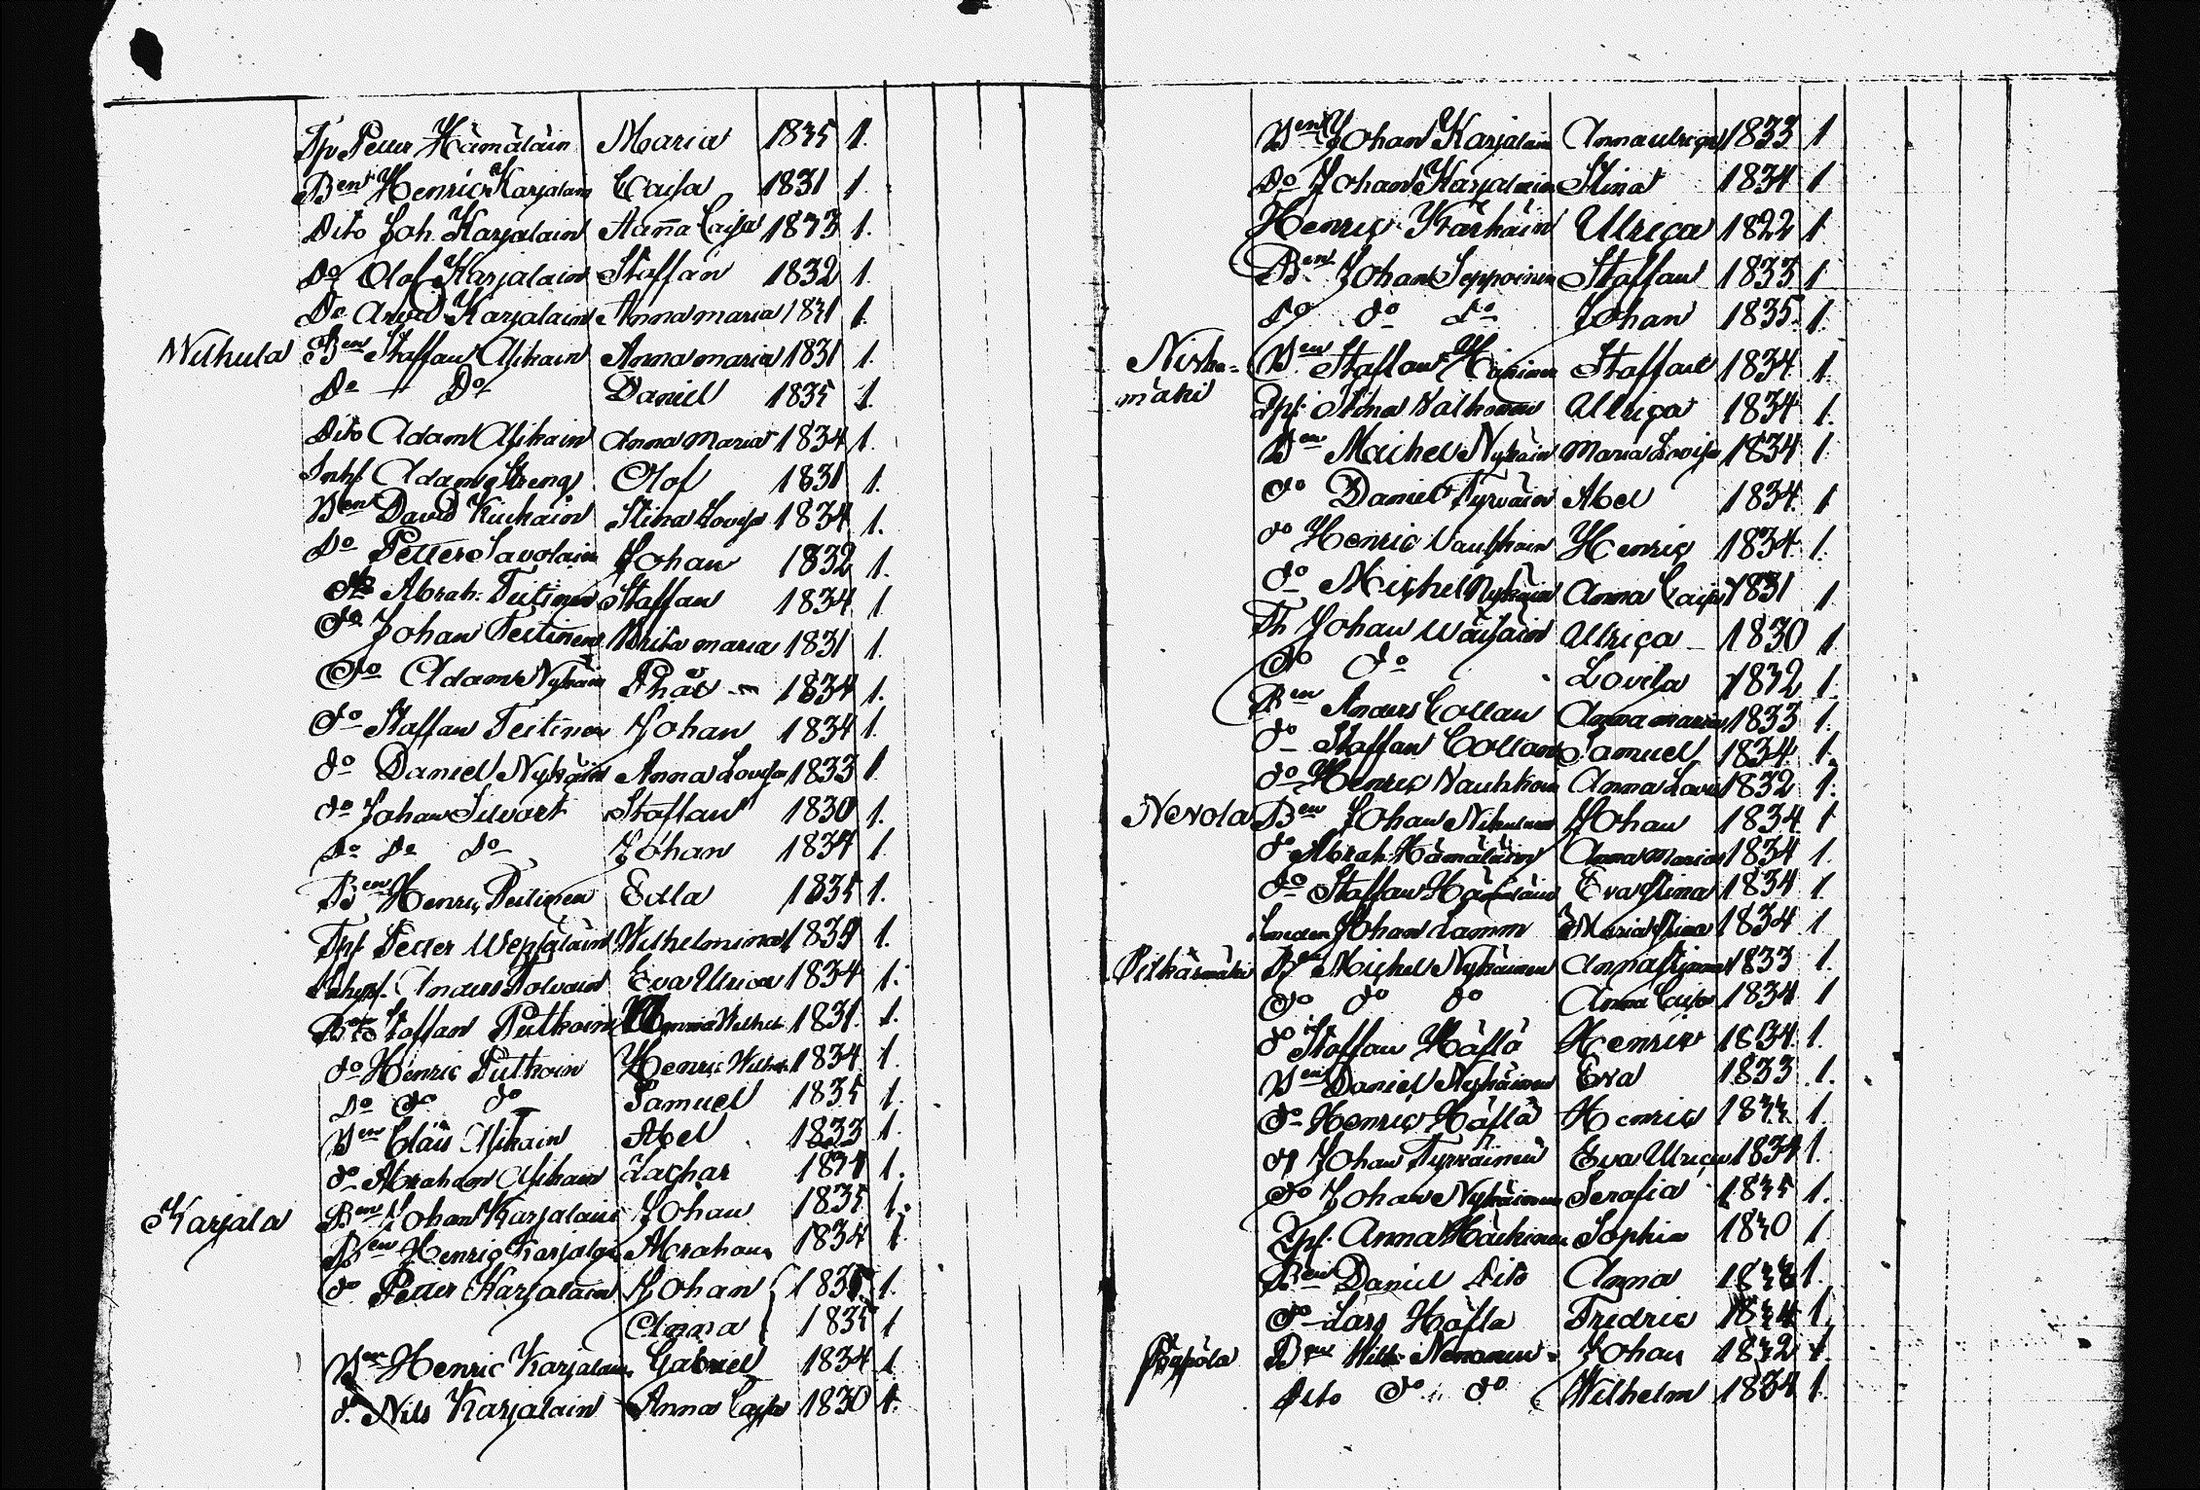 Tp Petter Hämäläin Maria 1835 1.
Ben Henric Karjalain Caisa 1831 1.
Dito Joh. Karjalain Anna Caisa 1833 1.
Do Olof Karjalain Staffan 1832 1.
Do Arvid Karjalain Anna maria 1831 1.
Wilhula Ben Staffan Asikain Anna maria 1831 1.
Do Do Daniel 1835 1.
Dito Adam Asikain Anna Maria 1834 1.
Inhs Adam Streng Olof 1831 1.
Ben David Kiukäin Stina Lovisa 1834 1.
Do Petter Savolain Johan 1832 1.
do Abrah. Teitinen Staffan 1834 1
do Johan Teitinen Brita maria 1831 1.
do Adam Nykäin 1834 1.
do Staffan Teitinen Johan 1834 1.
do Daniel Nykäin Anna Lovisa 1833 1.
do Johan Siivart Staffan 1830 1.
do do do Johan 1834 1.
Ben Henric Teitinen Edla 1835 1.
Tpf Petter Wepsäläin Wilhelmina 1834 1.
Anders Tolvain Eva Ulrica 1834 1.
Staffan Putkoin Wilhel. 1831. 1.
do Henric Putkoin Henric Wilh. 1834 1.
Do do do Samuel 1835 1.
Ben Cläis Asikain Abel 1833 1.
do Abraham Asikain Zachar 1834 1.
Karjala Ben Johan Karjalain Johan 1835 1.
Ben Henric Karjalain Abraham 1834 1.
do Petter Karjalain Johan 1835 1.
Anna 1835 1
Ben Henric Karjalain Gabriel 1834 1
d. Nils Karjalain Anna Caisa 1830 1.
Ben Johan Karjalain Anna Ulrica 1833 1
Do Johan Karjalain Stina 1834 1
Henric Kärhäin Ulrica 1822 1
Ben Johan Seppoinen Staffan 1833 1
do do do Johan 1835. 1.
Niska=
mäki
Ben Staffan Häkinen Staffan 1834 1.
Tpf. Stina Walkonen Ulrica 1834 1.
Ben Maichel Nykäin Maria Lovisa 1834 1.
do Daniel Tyrväin Abel 1834. 1
do Henric Vauhkoin Henric 1834 1.
do Michel Nykäin Anna Caisa 1831 1
Th Johan Wäisäin Ulrica 1830 1
do do Lovisa 1832 1.
Ben Anders Collan Anna maria 1833 1.
do Staffan Collan Samuel 1834. 1.
do Henric Vauhkoin Anna Lovis 1832 1.
Nerola Ben Johan Nikulain Johan 1834. 1
do Abrah. Hämäläin Anna Maria 1834 1.
do Staffan Hämäläin Eva Stina 1834 1.
Smeden Johan Lamm Maria Stina 1834 1
Pitkänmäki Ben Michel Nykäinen Anna Stina 1833 1.
do do do Anna Caisa 1834 1
do Staffan Häflä Henric 1834. 1.
Ben Daniel Nykäinen Eva 1833. 1.
do Henric Häflä Henric 1833. 1.
do Johan Tyrväinen Eva Ulrica 1834 1.
do Johan Nykäinen Serafia 1835 1.
Tpf. Anna Häikinen Sophia 1830 1.
Ben Daniel Dito Anna 1833 1.
do Lars Häfla Fredric 1834 1.
Pappola Ben Wilh. Nenonen Johan 1832 1.
Dito do do Wilhelm 1834 1.